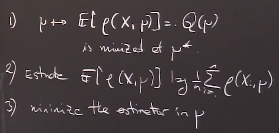 1) μ ↦ E[ρ(X, μ)] =: Q(μ)
is minized at μ*
2) Estimate E[ρ(X, μ)] by 1/n Σ_{i=1}^n ρ(X_i, μ)
3) minimize the estimator in μ